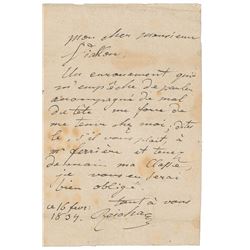 mon cher monsieur
Un enrouement qui
m'empêche de parler
accompagné de mal
de tête me force de
me tenir chez moi; dites
le s'il vous plait, à
mr ferrière et tenez
demain ma classe,
je vous en serai
bien obligé.
tout à vous
ce 16 fevr.
1834. Reicha